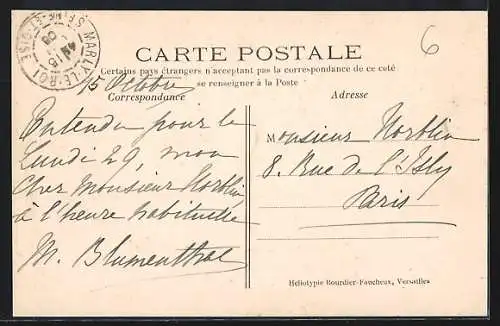 MARLY-LE-ROI
SEINE-ET-OISE
6
CARTE POSTALE
Certains pays étrangers n'acceptent pas la correspondance de ce coté
se renseigner à la Poste
Octobre
Correspondance
Adresse
Entendu pour le
Lundi 29, mon
Cher Monsieur Norblin
à l'heure habituelle
M. Blumenthal
Monsieur Norblin
8. Rue de l'Isly
Paris
Héliotypie Bourdier-Faucheux, Versailles